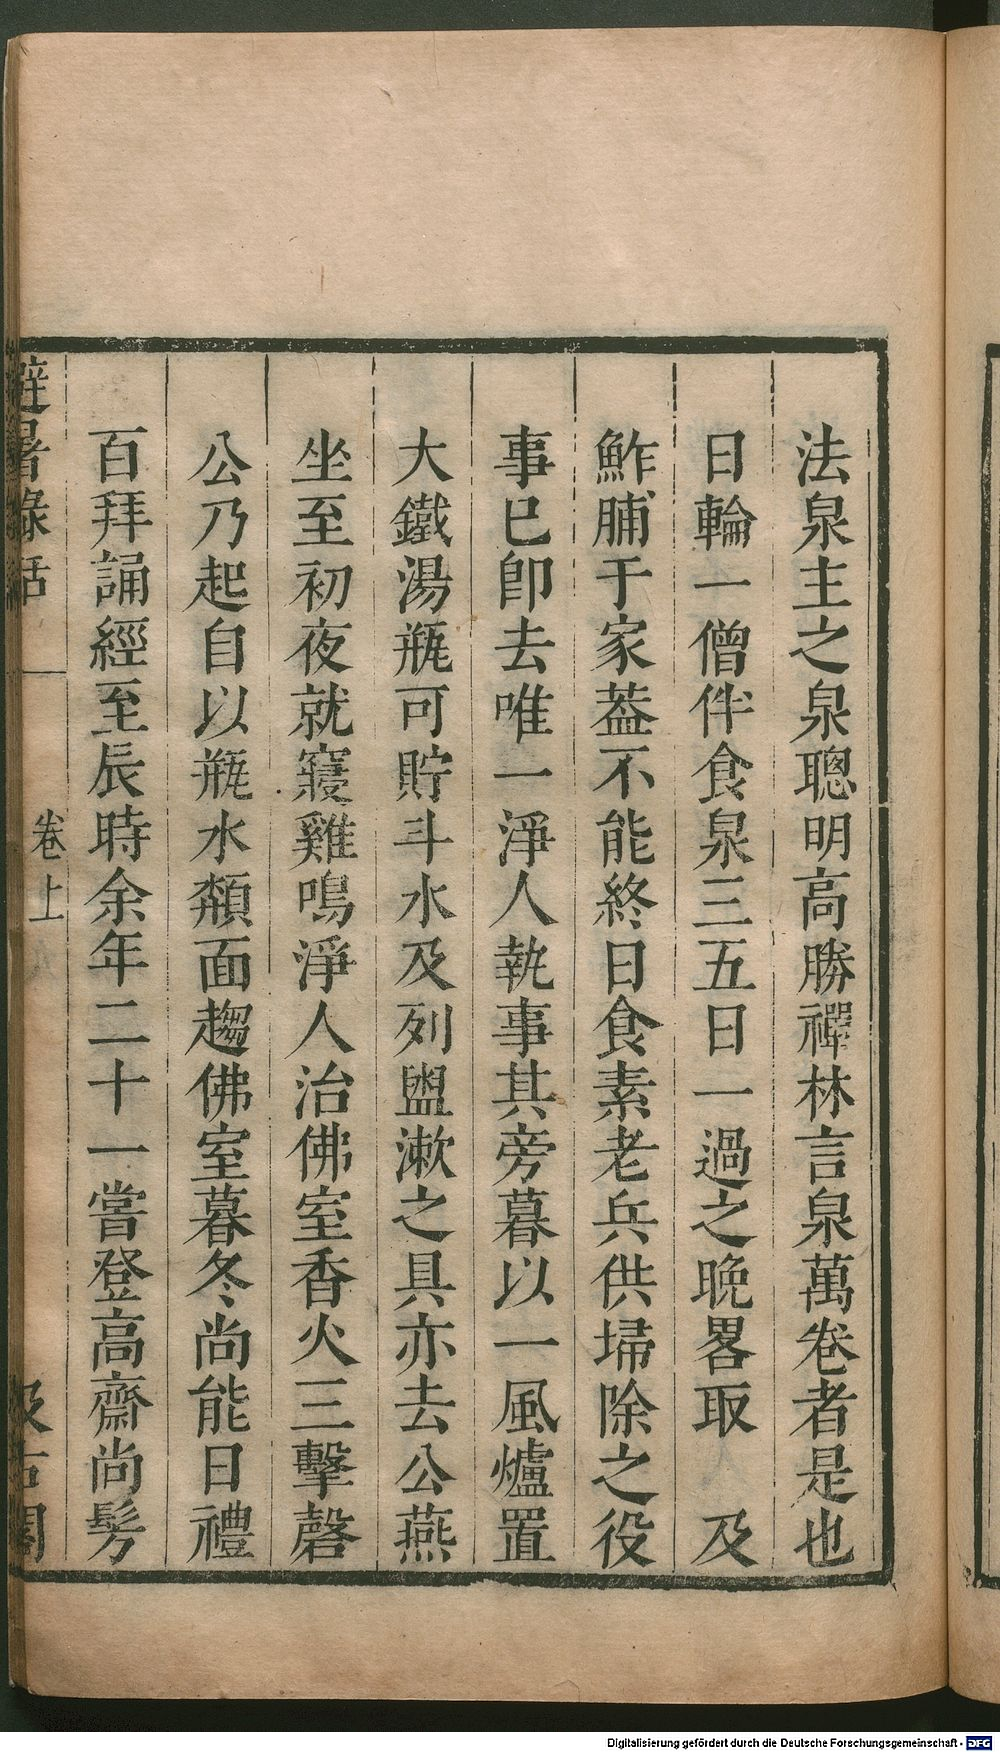 法泉主之泉聰明高勝禪林言泉萬卷者是也
日輪一僧伴食泉三五日一過之晩畧取　及
鮓脯于家葢不能終日食素老兵供埽除之役
事已卽去唯一淨人執事其旁暮以一風爐置
大鐵湯瓶可貯斗水及列盥漱之具亦去公燕
坐至初夜就寢雞鳴淨人治佛室香火三擊磬
公乃起自以瓶水頮面趨佛室暮冬尚能日禮
百拜誦經至辰時余年二十一嘗登高齋尚髣
避暑錄話
卷上
汲古閣
Digitalisierung gefördert durch die Deutsche Forschungsgemeinschaft - DFG